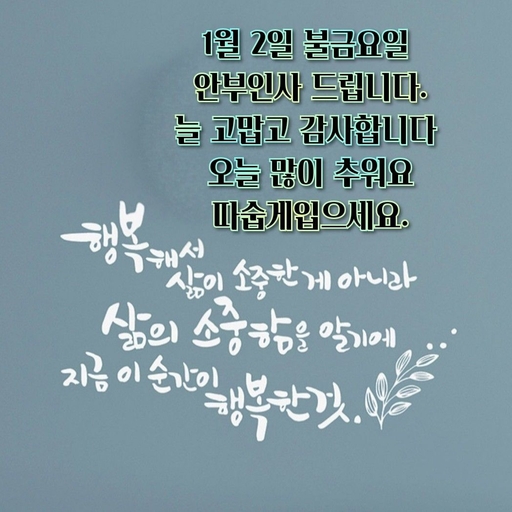 1월 2일 불금요일
안부인사 드립니다.
늘 고맙고 감사합니다
오늘 많이 추워요
따숩게입으세요.
행복해서
삶이 소중한 게 아니라
삶의 소중함을 알기에 ...
지금 이 순간이
행복한 것.